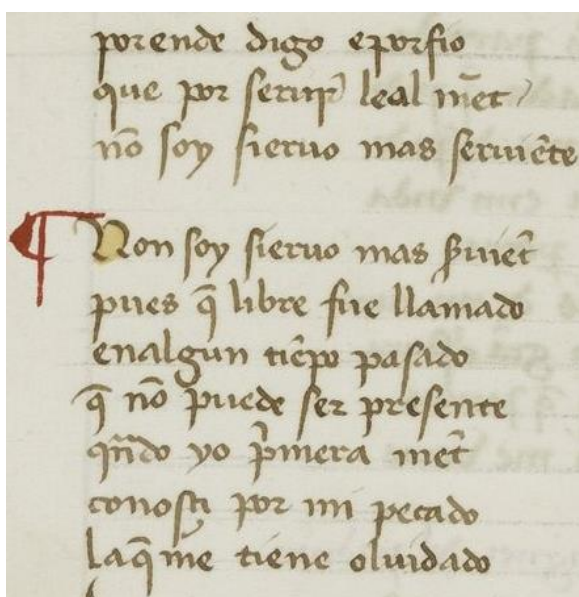 porende digo eporfio
que por seruir leal mēt
nō soy sieruo mas seruiēte
¶ Non soy sieruo mas ꝑuiēt
pues q̄ libre fue llamado
enalgun tiēpo pasado
q̄ nō puede ser presente
qn̄do yo p̄mera mēt
conosçi por mi pecado
laq̄ me tiene oluidado